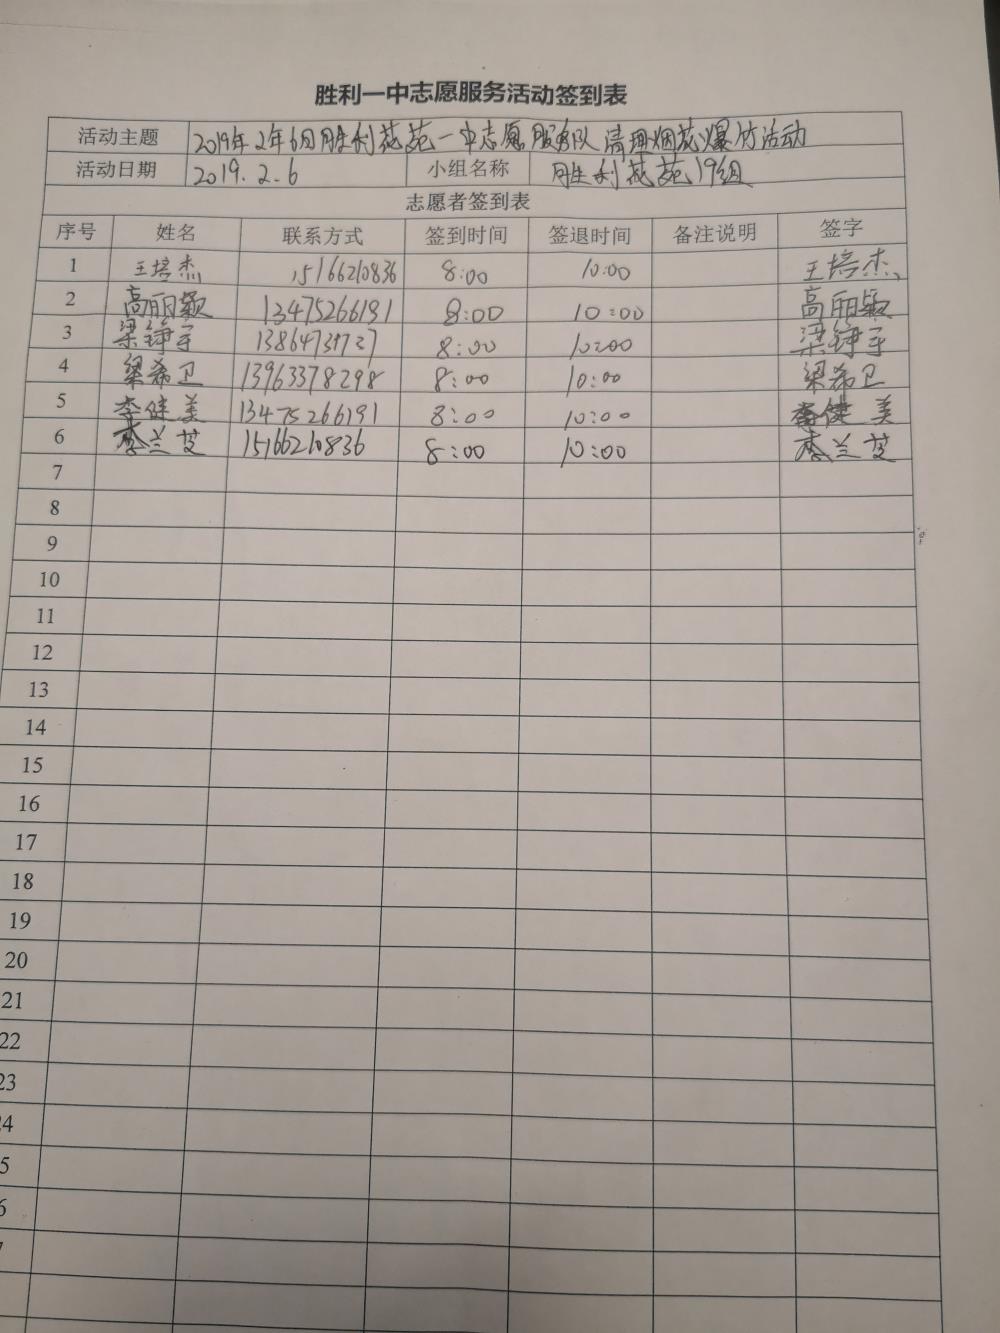 胜利一中志愿服务活动签到表
活动主题 2019年2年6日胜利花苑一中志愿服务队清理烟花爆竹活动
活动日期 2019.2.6 小组名称 胜利花苑19组
志愿者签到表
序号 姓名 联系方式 签到时间 签退时间 备注说明 签字
1 王培杰 15166210836 8:00 10:00 王培杰
2 高丽颖 13475266191 8:00 10:00 高丽颖
3 梁铮宇 8:00 10:00 梁铮宇
4 梁希卫 13963378298 8:00 10:00 梁希卫
5 李健美 13475266191 8:00 10:00 李健美
6 李兰芝 15166210836 8:00 10:00 李兰芝
7
8
9
10
11
12
13
14
15
16
17
18
19
20
21
22
23
24
5
6
7